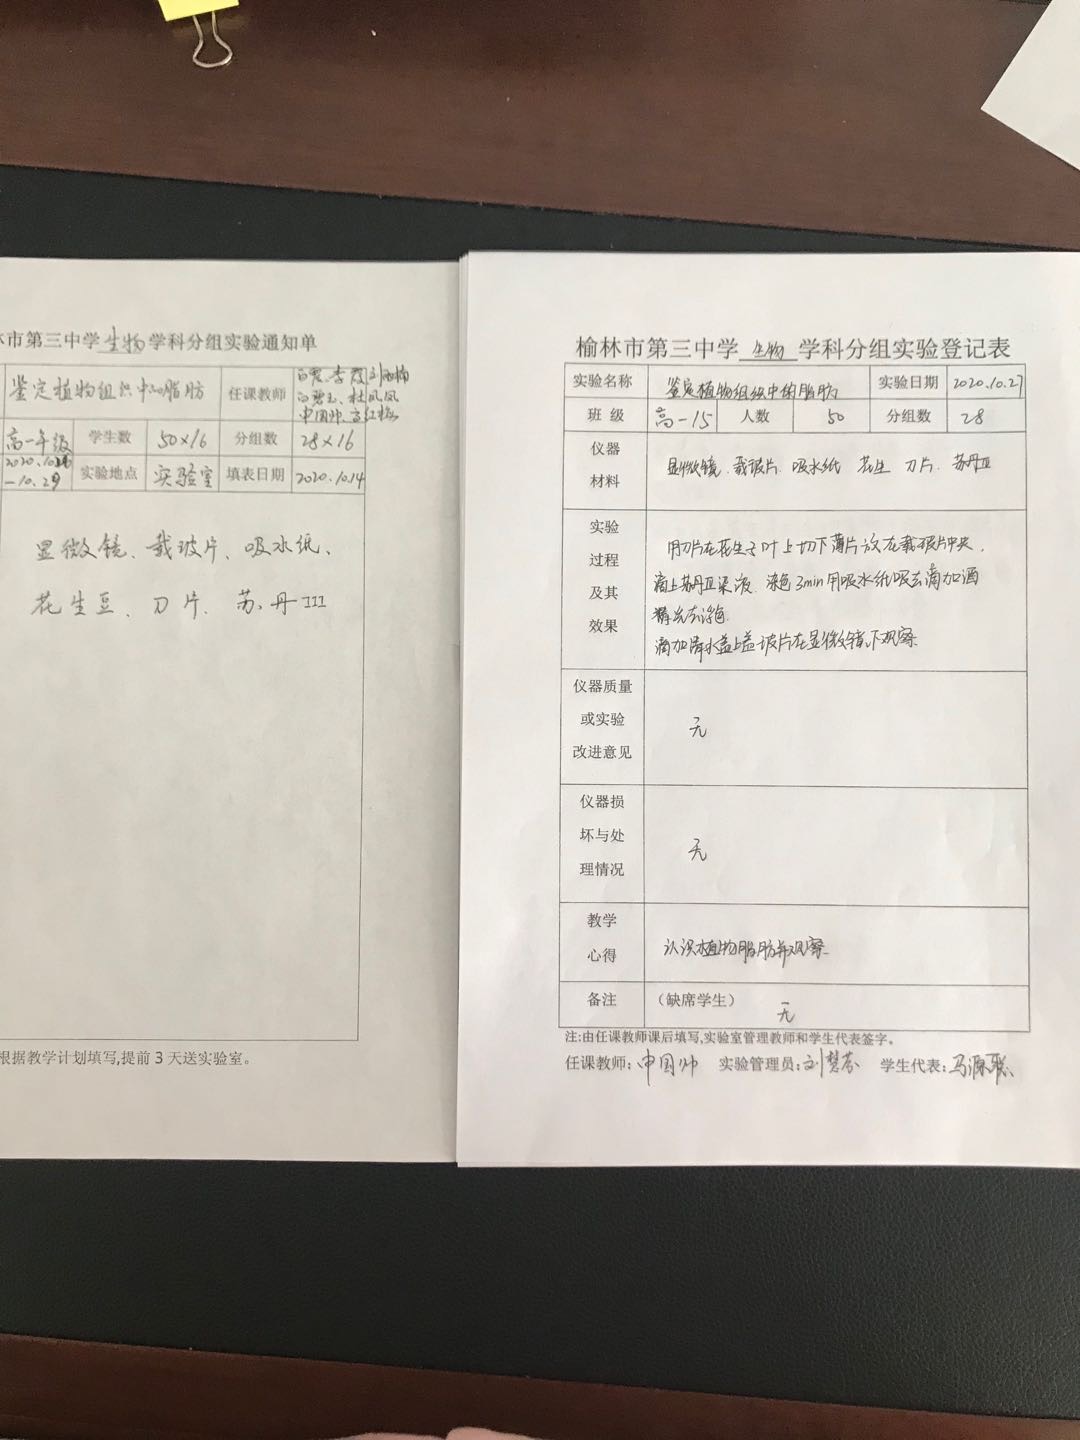 市第三中学生物学科分组实验通知单
鉴定植物组织中的脂肪 任课教师
高一年级 学生数 50×16 分组数 28×16
-10.29 实验地点 实验室 填表日期 2020.10.14
显微镜、载玻片、吸水纸、
花生豆、刀片、苏丹III
根据教学计划填写,提前3天送实验室。
榆林市第三中学 生物 学科分组实验登记表
实验名称 鉴定植物组织中的脂肪 实验日期 2020.10.27
班 级 高一15 人数 50 分组数 28
仪器
材料
显微镜、载玻片、吸水纸 花生 刀片、苏丹III
实验
过程
及其
效果
用刀片在花生子叶上切下薄片放在载玻片中央,
滴上苏丹III染液、染色3min用吸水纸吸去滴加酒
精洗去浮色
滴加清水盖上盖玻片在显微镜下观察
仪器质量
或实验
改进意见
无
仪器损
坏与处
理情况
无
教学
心得
认识植物脂肪并观察
备注 (缺席学生) 无
注:由任课教师课后填写,实验室管理教师和学生代表签字。
任课教师: 实验管理员: 学生代表: